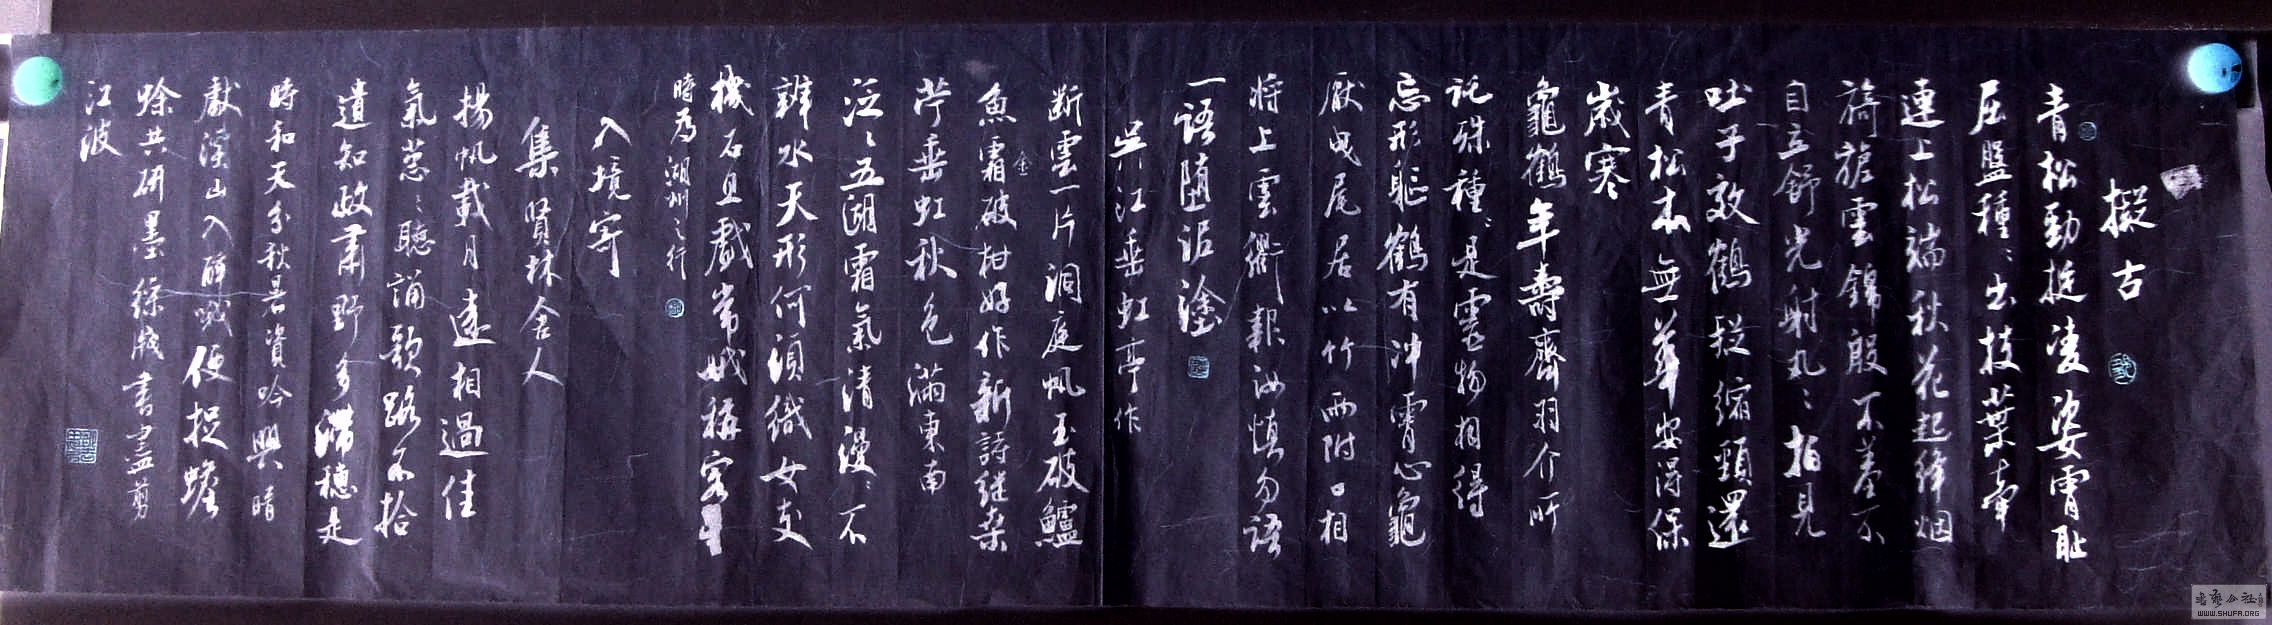 擬古
青松勁挺凌姿霄恥
屈盤種々出枝葉牽
連上松端秋花起絳烟
旖旎雲錦殷不羞不
自立舒光射丸々柏見
吐子效鶴疑縮頸還
青松本無華安得保
歲寒
龜鶴年壽齊羽介所
託殊種々是靈物相得
忘形軀鶴有沖霄心龜
厭曳尾居以竹兩附口相
將上雲衢報汝慎勿語
一語墮泥塗
吳江垂虹亭作
斷雲一片洞庭帆玉破鱸
魚霜金破柑好作新詩繼桑
苧垂虹秋色滿東南
泛々五湖霜氣清漫々不
辨水天形何須織女支
機石且戲常娥稱客星
時為湖州之行
入境寄
集賢林舍人
揚帆載月遠相過佳
氣蔥々聽誦歌路不拾
遺知政肅野多滯穗是
時和天分秋暑資吟興晴
獻溪山入醉哦便捉蟾
蜍共研墨綵牋書盡剪
江波
WWW.SHUFA.ORG